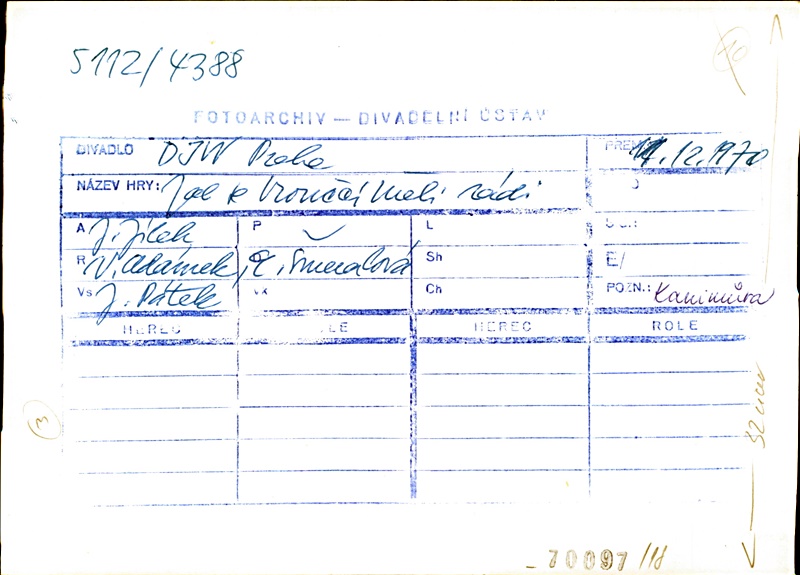 5112/4388
10
FOTOARCHIV — DIVADELNÍ ÚSTAV
DIVADLO DJW Praha
PREM 11.12.1970
NÁZEV HRY: Jak se Vrončái měli rádi
A J. Jílek P L
R V. Adámek, E. Šmeralová Sh E/
Vs J. Pátek Ch POZN.: Kanimůra
HEREC ROLE HEREC ROLE
3
70097/18